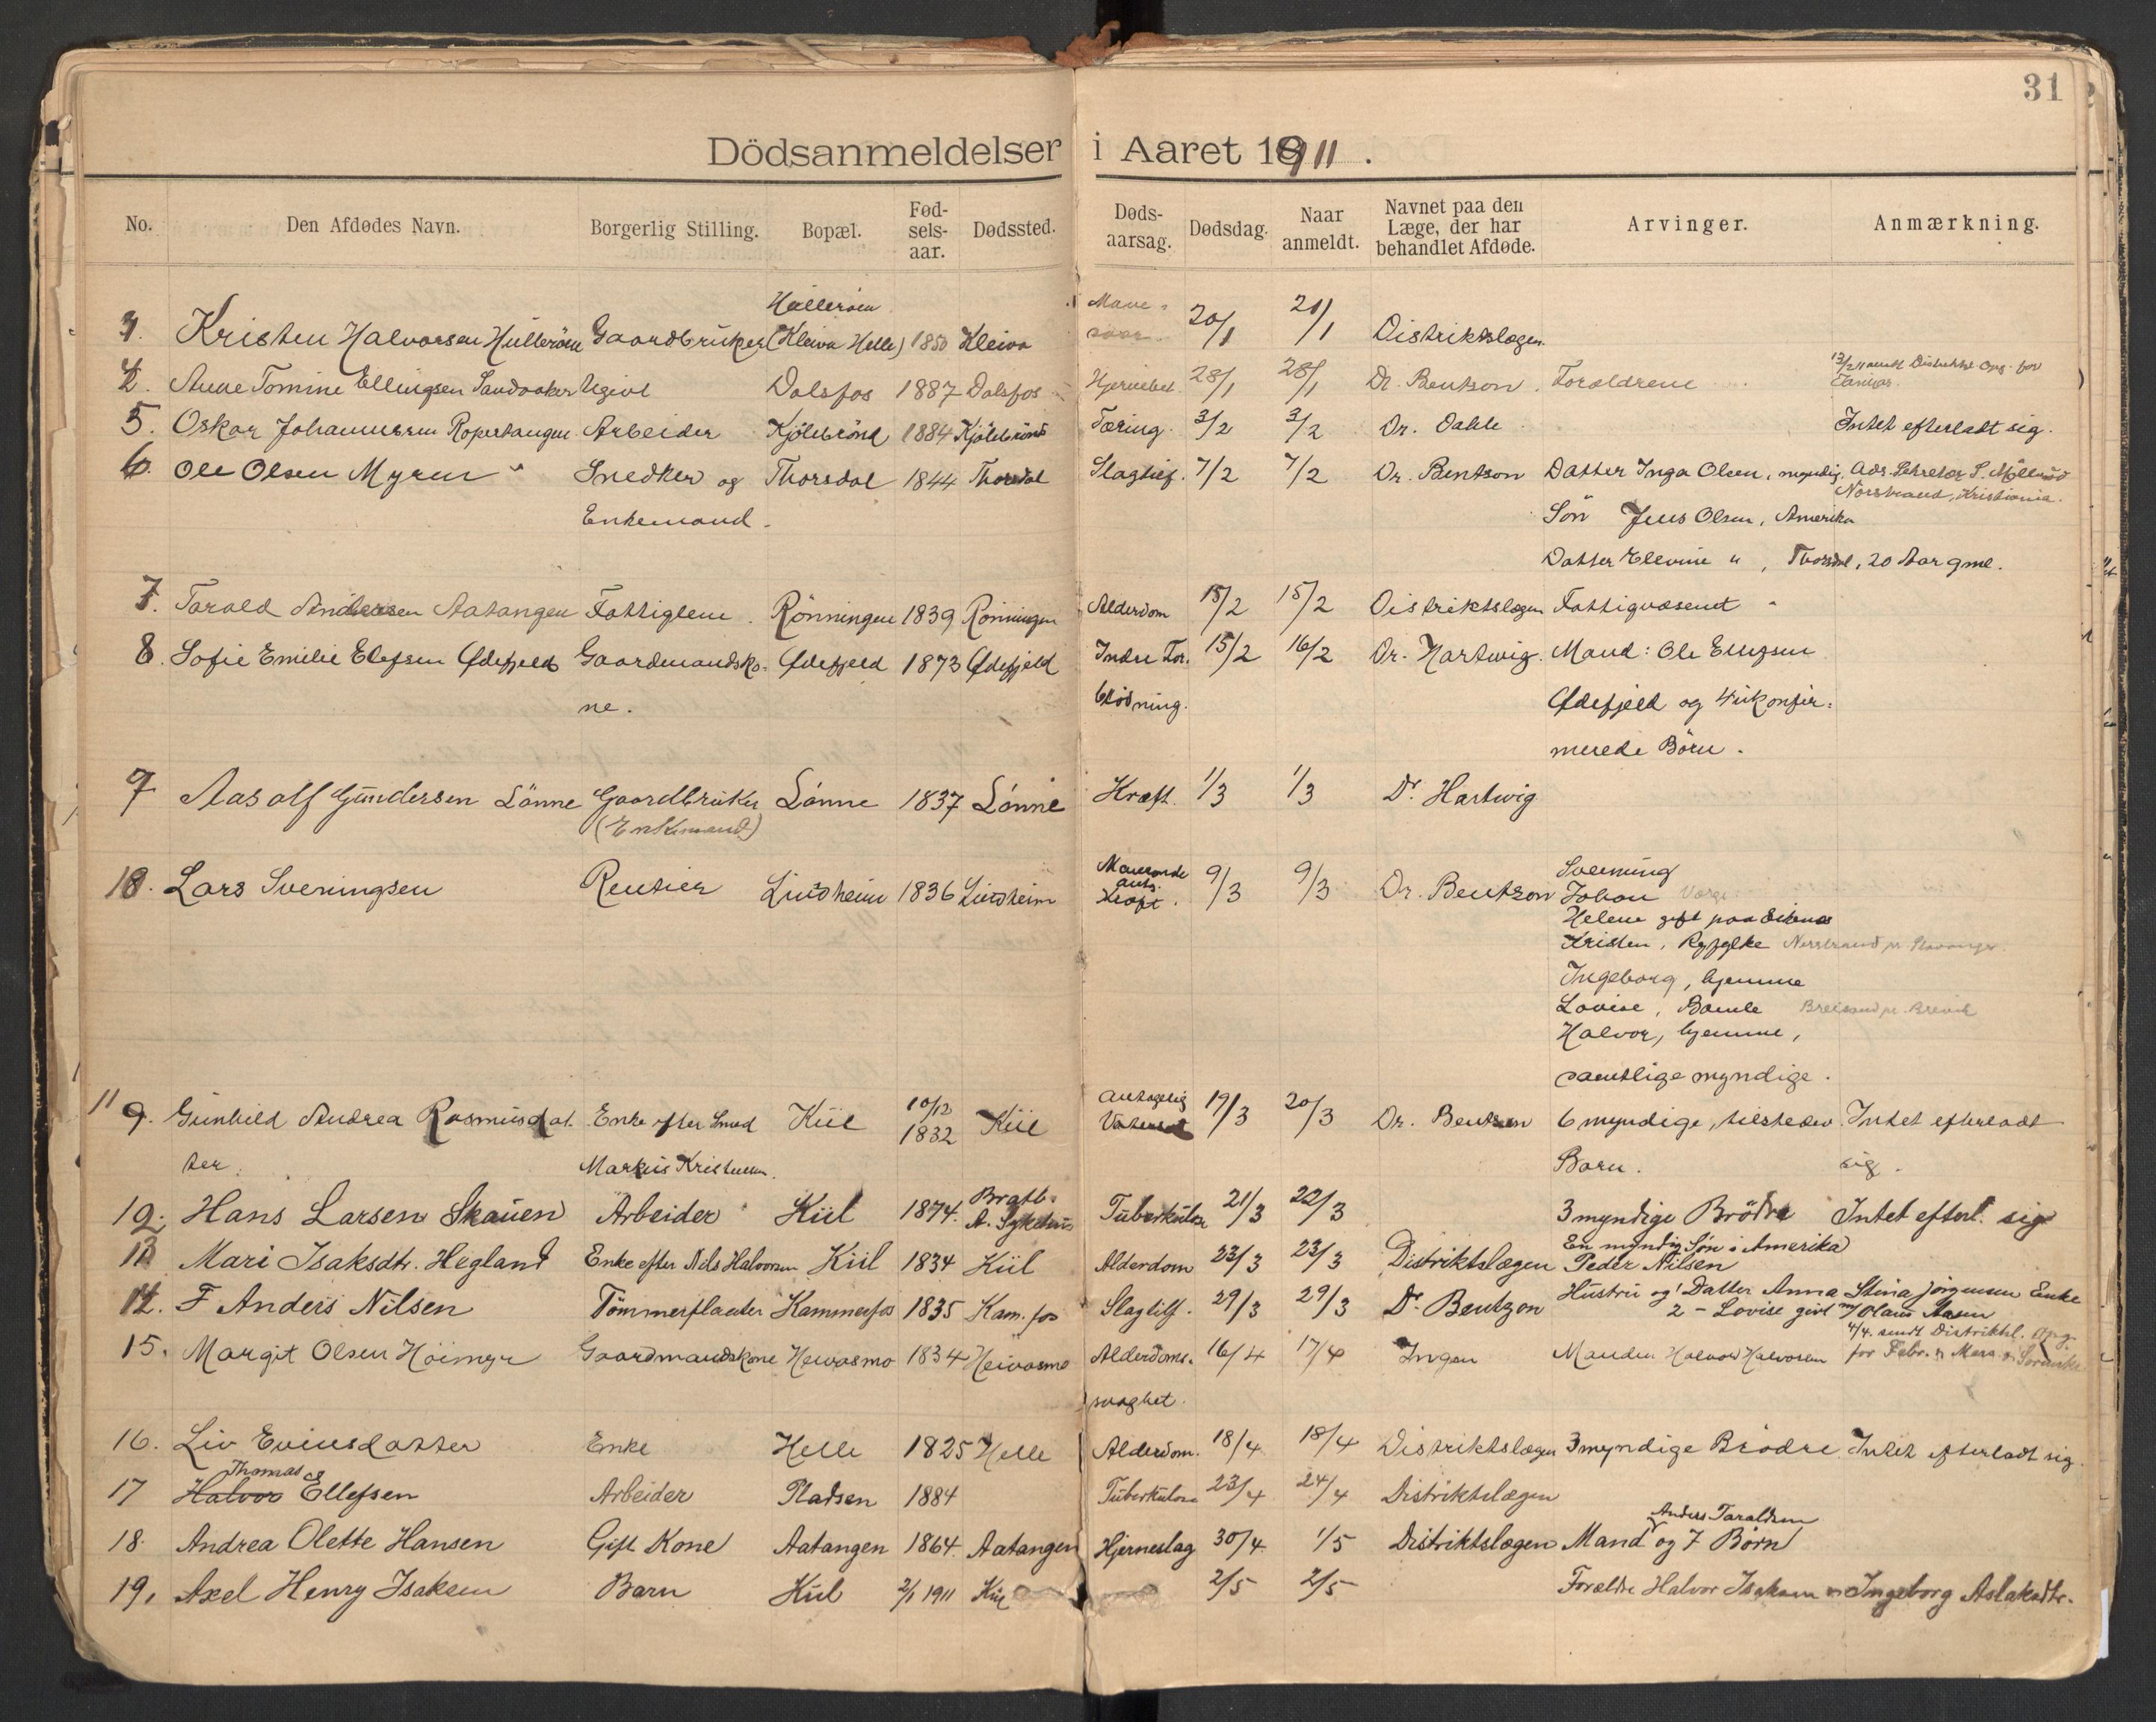 31
Dödsanmeldelser i Aaret 1911.
No. Den Afdødes Navn. Borgerlig Stilling. Bopæl. Fød-sels-aar. Dødssted. Døds-aarsag. Dødsdag. Naar anmeldt. Navnet paa den Læge, der har behandlet Afdøde. Arvinger. Anmærkning.
3. Kristen Halvorsen Hulleröen Gaardbruker Hulleröen (Kleiva Helle) 1850 Kleiva Mave- 20/1 21/1 Distriktslægen
4. Anne Tomine Ellingsen Sandaaker Ugivt Dalsfos 1887 Dalsfos Hjernebet. 28/1 28/1 Dr. Bentzon. Foraldrene 13/2 11 sendt Distriktsl. Opg. for Januar.
5. Oskar Johannesen Ropertangen Arbeider Kjölebrönd 1884 Kjölebrönd Tæring. 3/2 3/2 Dr. Dahle Intet efterladt sig.
6. Ole Olsen Myren Snedker og Thorsdal 1844 Thorsdal Slagtilf. 7/2 7/2 Dr. Bentzon Datter Inga Olsen, myndig. Adr. Sekretær S. Möllerød
Norstrand, Kristiania.
Enkemand. Sön Jens Olsen, Amerika
Datter Elevine " , Thorsdal, 20 Aar gml.
7. Tarald Andersen Aatangen Fattiglem. Rönningen 1839 Rönningen Alderdom 15/2 15/2 Distriktslægen Fattigvæsenet
8. Sofie Emilie Elefsen Ødefjeld Gaardmandsko- Ødefjeld 1873 Ødefjeld Indre For. 15/2 16/2 Dr. Hartwig. Mand: Ole Ellefsen
ne. blödning. Ødefjeld og 4 ukonfir-
merede Börn.
9 Aasolf Gundersen Lönne Gaardbruker Lönne 1837 Lönne Kræft. 1/3 1/3 Dr. Hartwig
(Enkemand)
10. Lars Sveningsen Rentier Lindheim 1836 Lindheim Maveonde ant. Kræft. 9/3 9/3 Dr. Bentzon Svenning
Johan Værge
Helene gift paa Eikenæs
Kristen, Ryfylke Nerstrand pr. Stavanger
Ingeborg, hjemme
Lovise, Bamle Breisand pr. Brevik
Halvor, hjemme,
samtlige myndige.
11 9. Gunhild Andrea Rasmusdat- Enke efter Smed Kiil 10/12 1832 Kiil Antagelig 19/3 20/3 Dr. Bentzen 6 myndige, tilstedev. Intet efterladt
ter. Markus Kristensen. Barn. sig.
12. Hans Larsen Skauen Arbeider Kiil 1874. Bratb- A. Sykehus Tuberkulose 21/3 22/3 3 myndige Brödre Intet efterl. sig
13 Mari Isaksdtr. Hegland Enke efter Nils Halvorsen Kiil 1834 Kiil Alderdom 23/3 23/3 Distriktslægen En myndig Søn i Amerika Peder Nilsen
14. F Anders Nilsen Tömmerfløter Kammerfos 1835 Kam.fos Slagtilf. 29/3 29/3 Dr. Bentzon Hustru og 1 Datter Anna Stina Jörgensen Enke
2 - Lovise givt m/ Olaus Aasen
15. Margit Olsen Höimyr Gaardmandskone Heivasmo 1834 Heivasmo Alderdoms- 16/4 17/4 Ingen Manden Halvor Halvorsen 4/4. sendt Distriktsl. Opg. for Febr. & Mars &
svaghet.
16. Liv Evinsdatter Enke Helle 1825 Helle Alderdom. 18/4 18/4 Distriktslægen 3 myndige Brödre. Intet efterladt sig.
17 Halvor Thomas Ellefsen Arbeider Pladsen 1884 Tuberkulose 23/4 24/4 Distriktslægen
18. Andrea Olette Hansen Gift Kone Aatangen 1864. Aatangen Hjerneslag 30/4 1/5 Distriktslægen Mand Anders Taraldsen og 7 Börn
19. Axel Henry Isaksen Barn Kiil 2/1 1911 Kiil 2/5 2/5 Forældre Halvor Isaksen & Ingeborg Aslaksdtr.